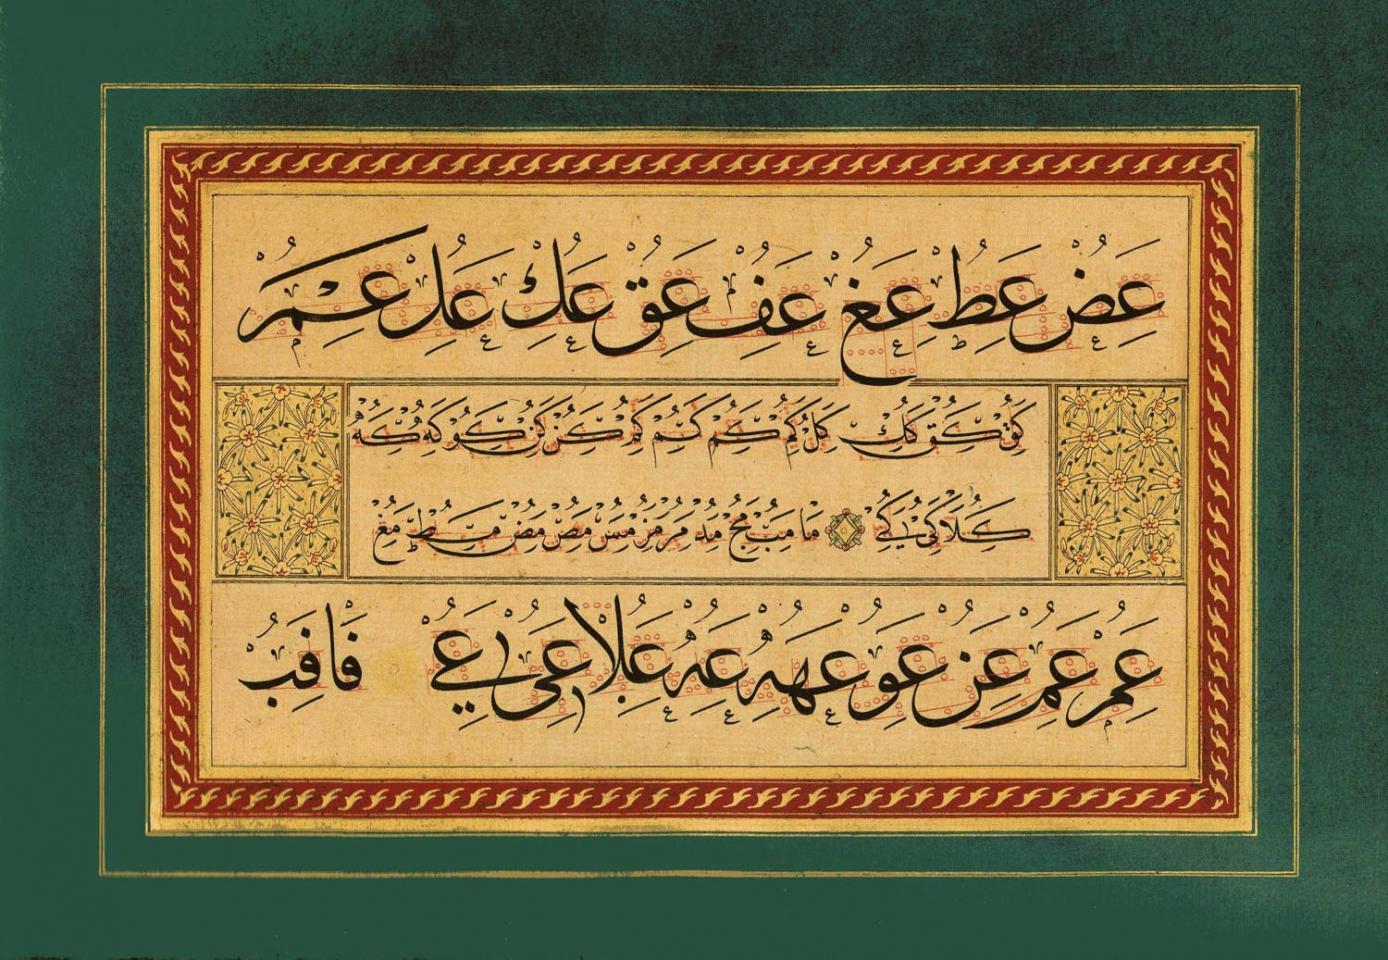 عض عط عغ عف عق عك عل عمر
كق كق كك كل كم كم كم كم كن كن كو كه كه
كلا كى كے ما مب مج مد مر مز مس مص مض مط مغ
عمر عمر عن عو عهه عه علا عى عے فا فب